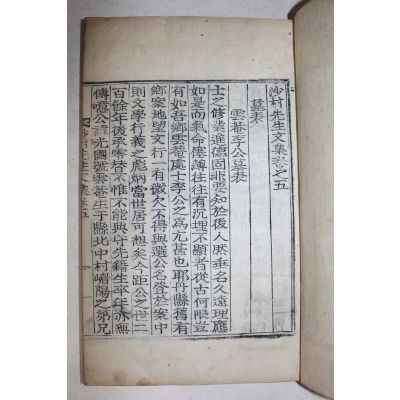 沙村先生文集卷之五
墓表
雲菴李公墓表
士之修業進德固非要知於後人然垂名久遠理應
如是而氣命蹇薄往往有沉埋不顯者從古何限豈
有如吾鄉雲菴處士李公之爲尤甚也耶丹縣舊有
鄉案地望文行一有微欠不得與選公名登於案中
則文學行義之彪炳當世居可想矣今距公之世二
百餘年後承零替不惟不能與守先籍生卒年亦無
傳噫公諱光國號雲菴生于縣北中村嵋陽之第兄
沙村先生文集卷五